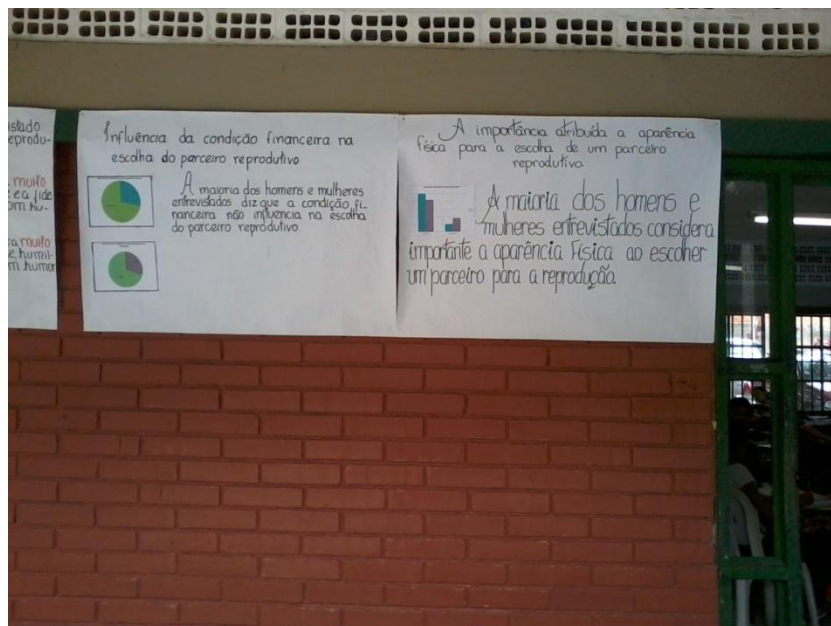 istado
eprodu-
muito
e a fide
om hu-
a muito
e, humil-
m humor
Influência da condição financeira na
escolha do parceiro reprodutivo
A maioria dos homens e mulheres
entrevistados diz que a condição fi-
nanceira não influencia na escolha
do parceiro reprodutivo.
A importância atribuída a aparência
física para a escolha de um parceiro
reprodutivo
A maioria dos homens e
mulheres entrevistados considera
importante a aparência física ao escolher
um parceiro para a reprodução.